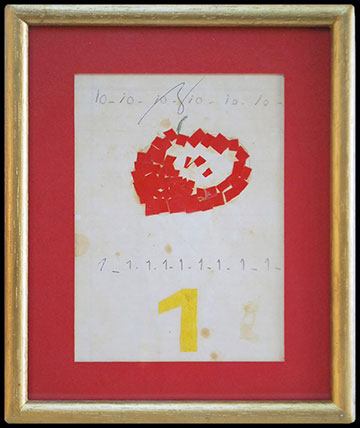 10 - 10 - 10 - 10 - 10 - 10 -
1 - 1 - 1 - 1 - 1 - 1 - 1 - 1 - 1 -
1